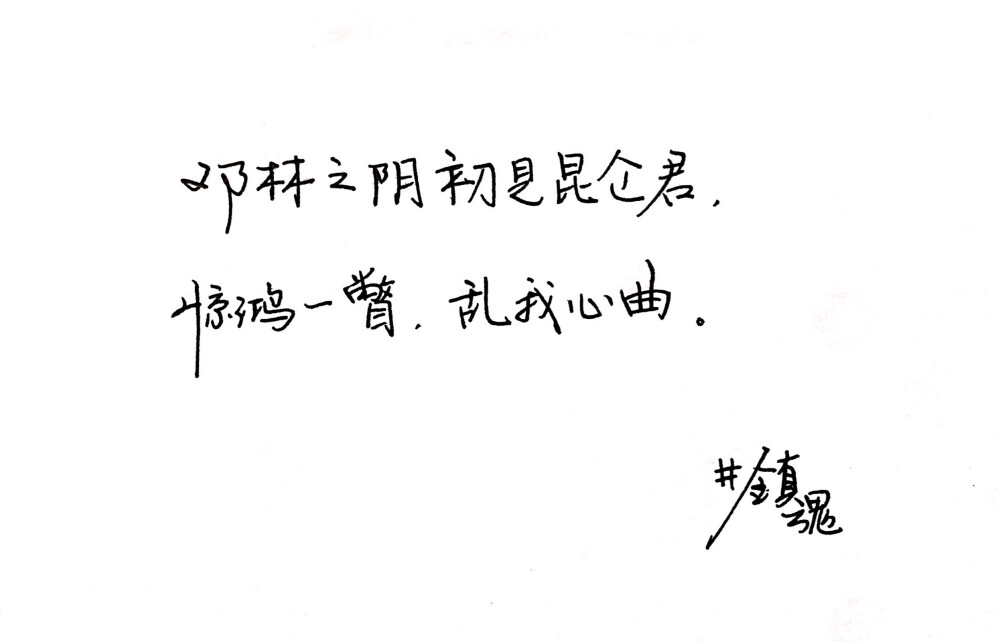 邓林之阴初见昆仑君，
惊鸿一瞥，乱我心曲。
#镇魂